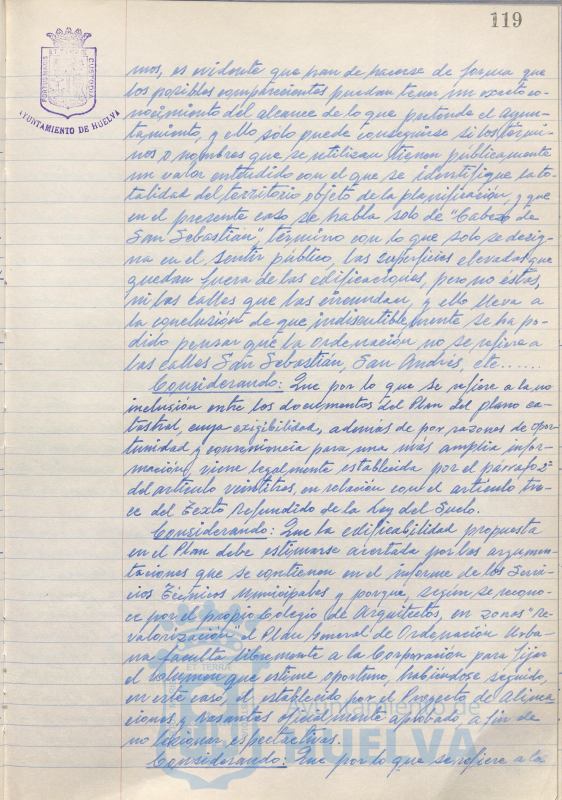 119
PORTUS MARIS ET TERRAE CUSTODIA
AYUNTAMIENTO DE HUELVA
mos, es evidente que han de hacerse de forma que
los posibles comparecientes puedan tener un exacto co-
nocimiento del alcance de lo que pretende el Ayun-
tamiento, y ello sólo puede conseguirse si los térmi-
nos o nombres que se utilizan tienen públicamente
un valor entendido con el que se identifique la to-
talidad del territorio objeto de la planificación, y que
en el presente caso se habla solo de "Cabezo de
San Sebastián", término con lo que solo se desig-
na en el sentir público, las superficies elevadas que
quedan fuera de las edificaciones, pero no éstas,
ni las calles que las circundan, y ello lleva a
la conclusión de que indiscutiblemente se ha po-
dido pensar que la ordenación no se refiere a
las calles San Sebastián, San Andrés, etc......
Considerando: Que por lo que se refiere a la no
inclusión entre los documentos del Plan del plano ca-
tastral, cuya exigibilidad, además de por razones de opor-
tunidad y conveniencia para una más amplia infor-
mación, viene legalmente establecida por el párrafo 2º
del artículo veintitres, en relación con el artículo tre-
ce del Texto Refundido de la Ley del Suelo.
Considerando: Que la edificabilidad propuesta
en el Plan debe estimarse acertada por las argumen-
taciones que se contienen en el informe de los Servi-
cios Técnicos Municipales y porque, según se recono-
ce por el propio Colegio de Arquitectos, en zonas "re-
valorización" el Plan General de Ordenación Urba-
na faculta libremente a la Corporación para fijar
el volumen que estime oportuno, habiéndose seguido,
en este caso, el establecido por el Proyecto de Alinea-
ciones y rasantes oficialmente aprobado, a fin de
no lesionar espectativas.
Considerando: Que por lo que se refiere a la
ET TERRA
Ayuntamiento de
HUELVA